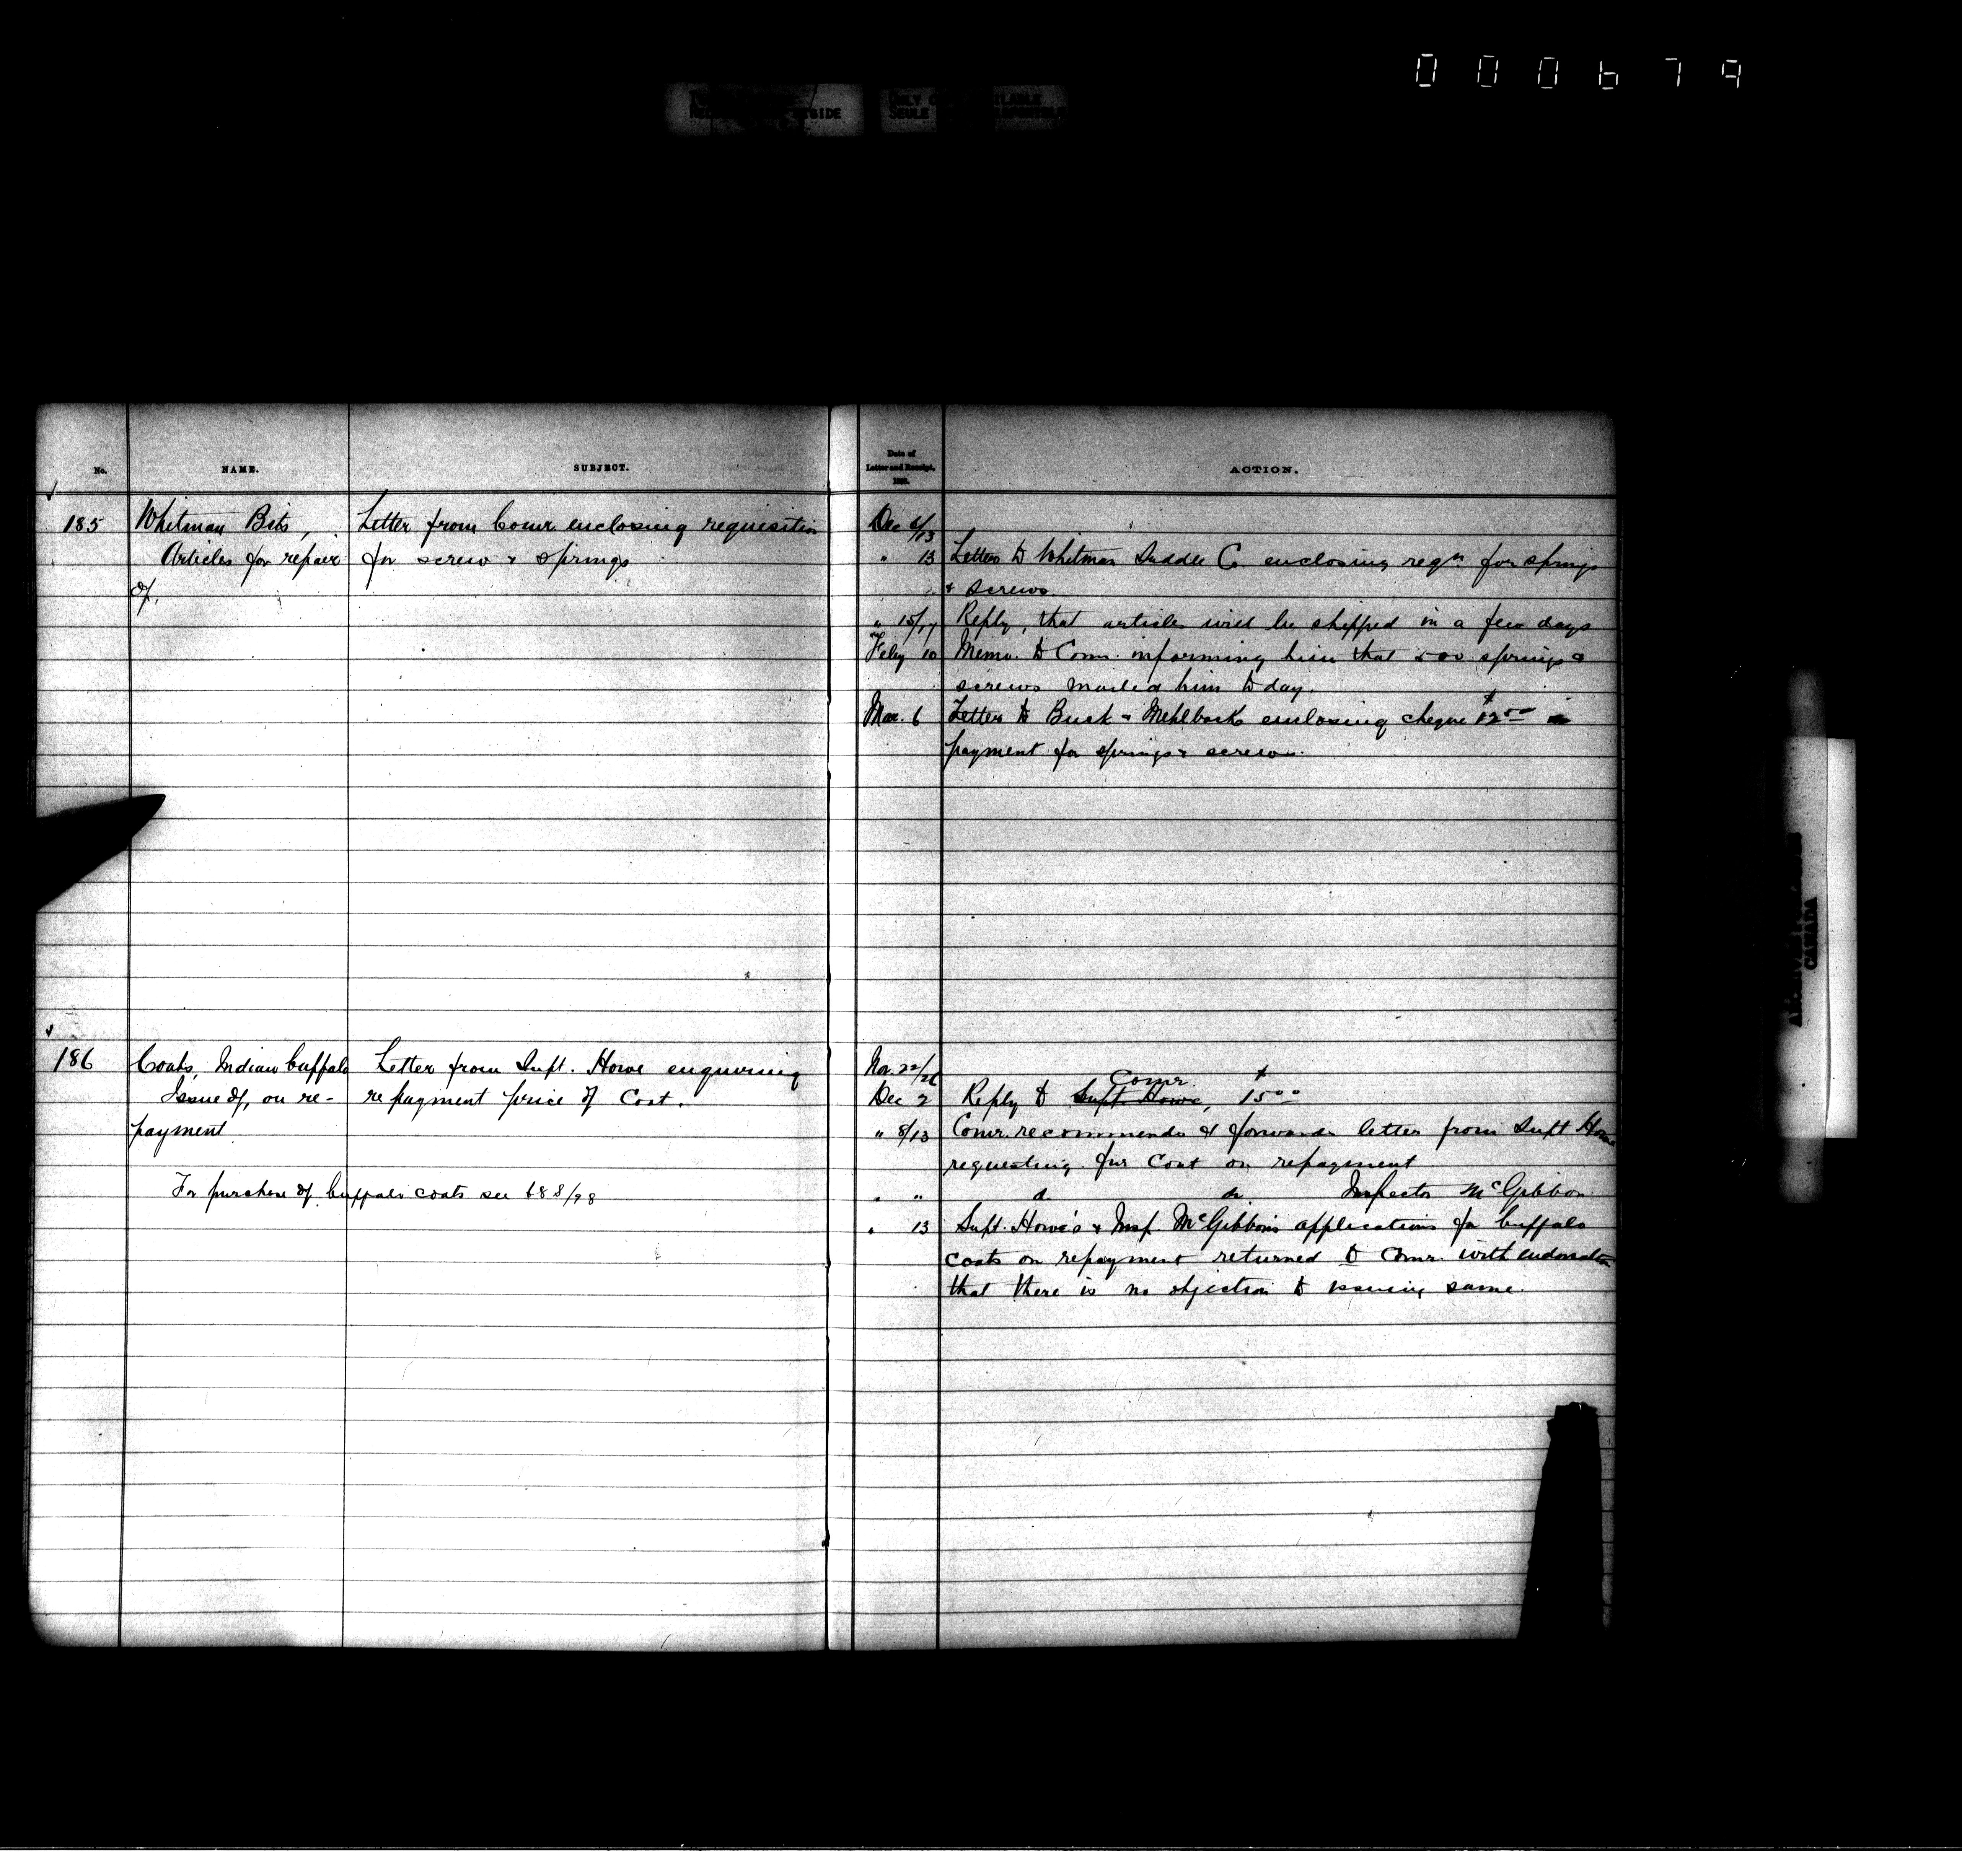 000679
ONLY
SEULE
No.
NAME.
SUBJECT.
Date of
Letter and Receipt,
ACTION.
185
Whitman Bits,
Articles for repair
of,
Letter from Comr enclosing requisition
for screw & springs
Dec 6/13
" 13 Letter to Whitman Saddle Co. enclosing reqn for springs
& screws.
" 15/17 Reply, that articles will be shipped in a few days
Feby 10 Memo. to Comr. informing him that 500 springs &
screws mailed him to day.
Mar. 6 Letter to Buck & Mehlbach enclosing cheque $12.50 in
payment for springs & screws.
186
Coats, Indian buffalo
Issue of, on re-
payment
For purchase of buffalo coats see 688/98
Letter from Supt. Howe enquiring
repayment price of Coat.
Nov. 22/26
Comr.
Dec 2 Reply to Supt. Howe, $15.00
" 8/13 Comr. recommends & forwards letter from Supt Howe
requesting fur Coat on repayment
" " do do Inspector McGibbon
" 13 Supt. Howe's & Insp. McGibbon's applications for buffalo
coats on repayment returned to Comr. with endorsation
that there is no objection to issuing same.